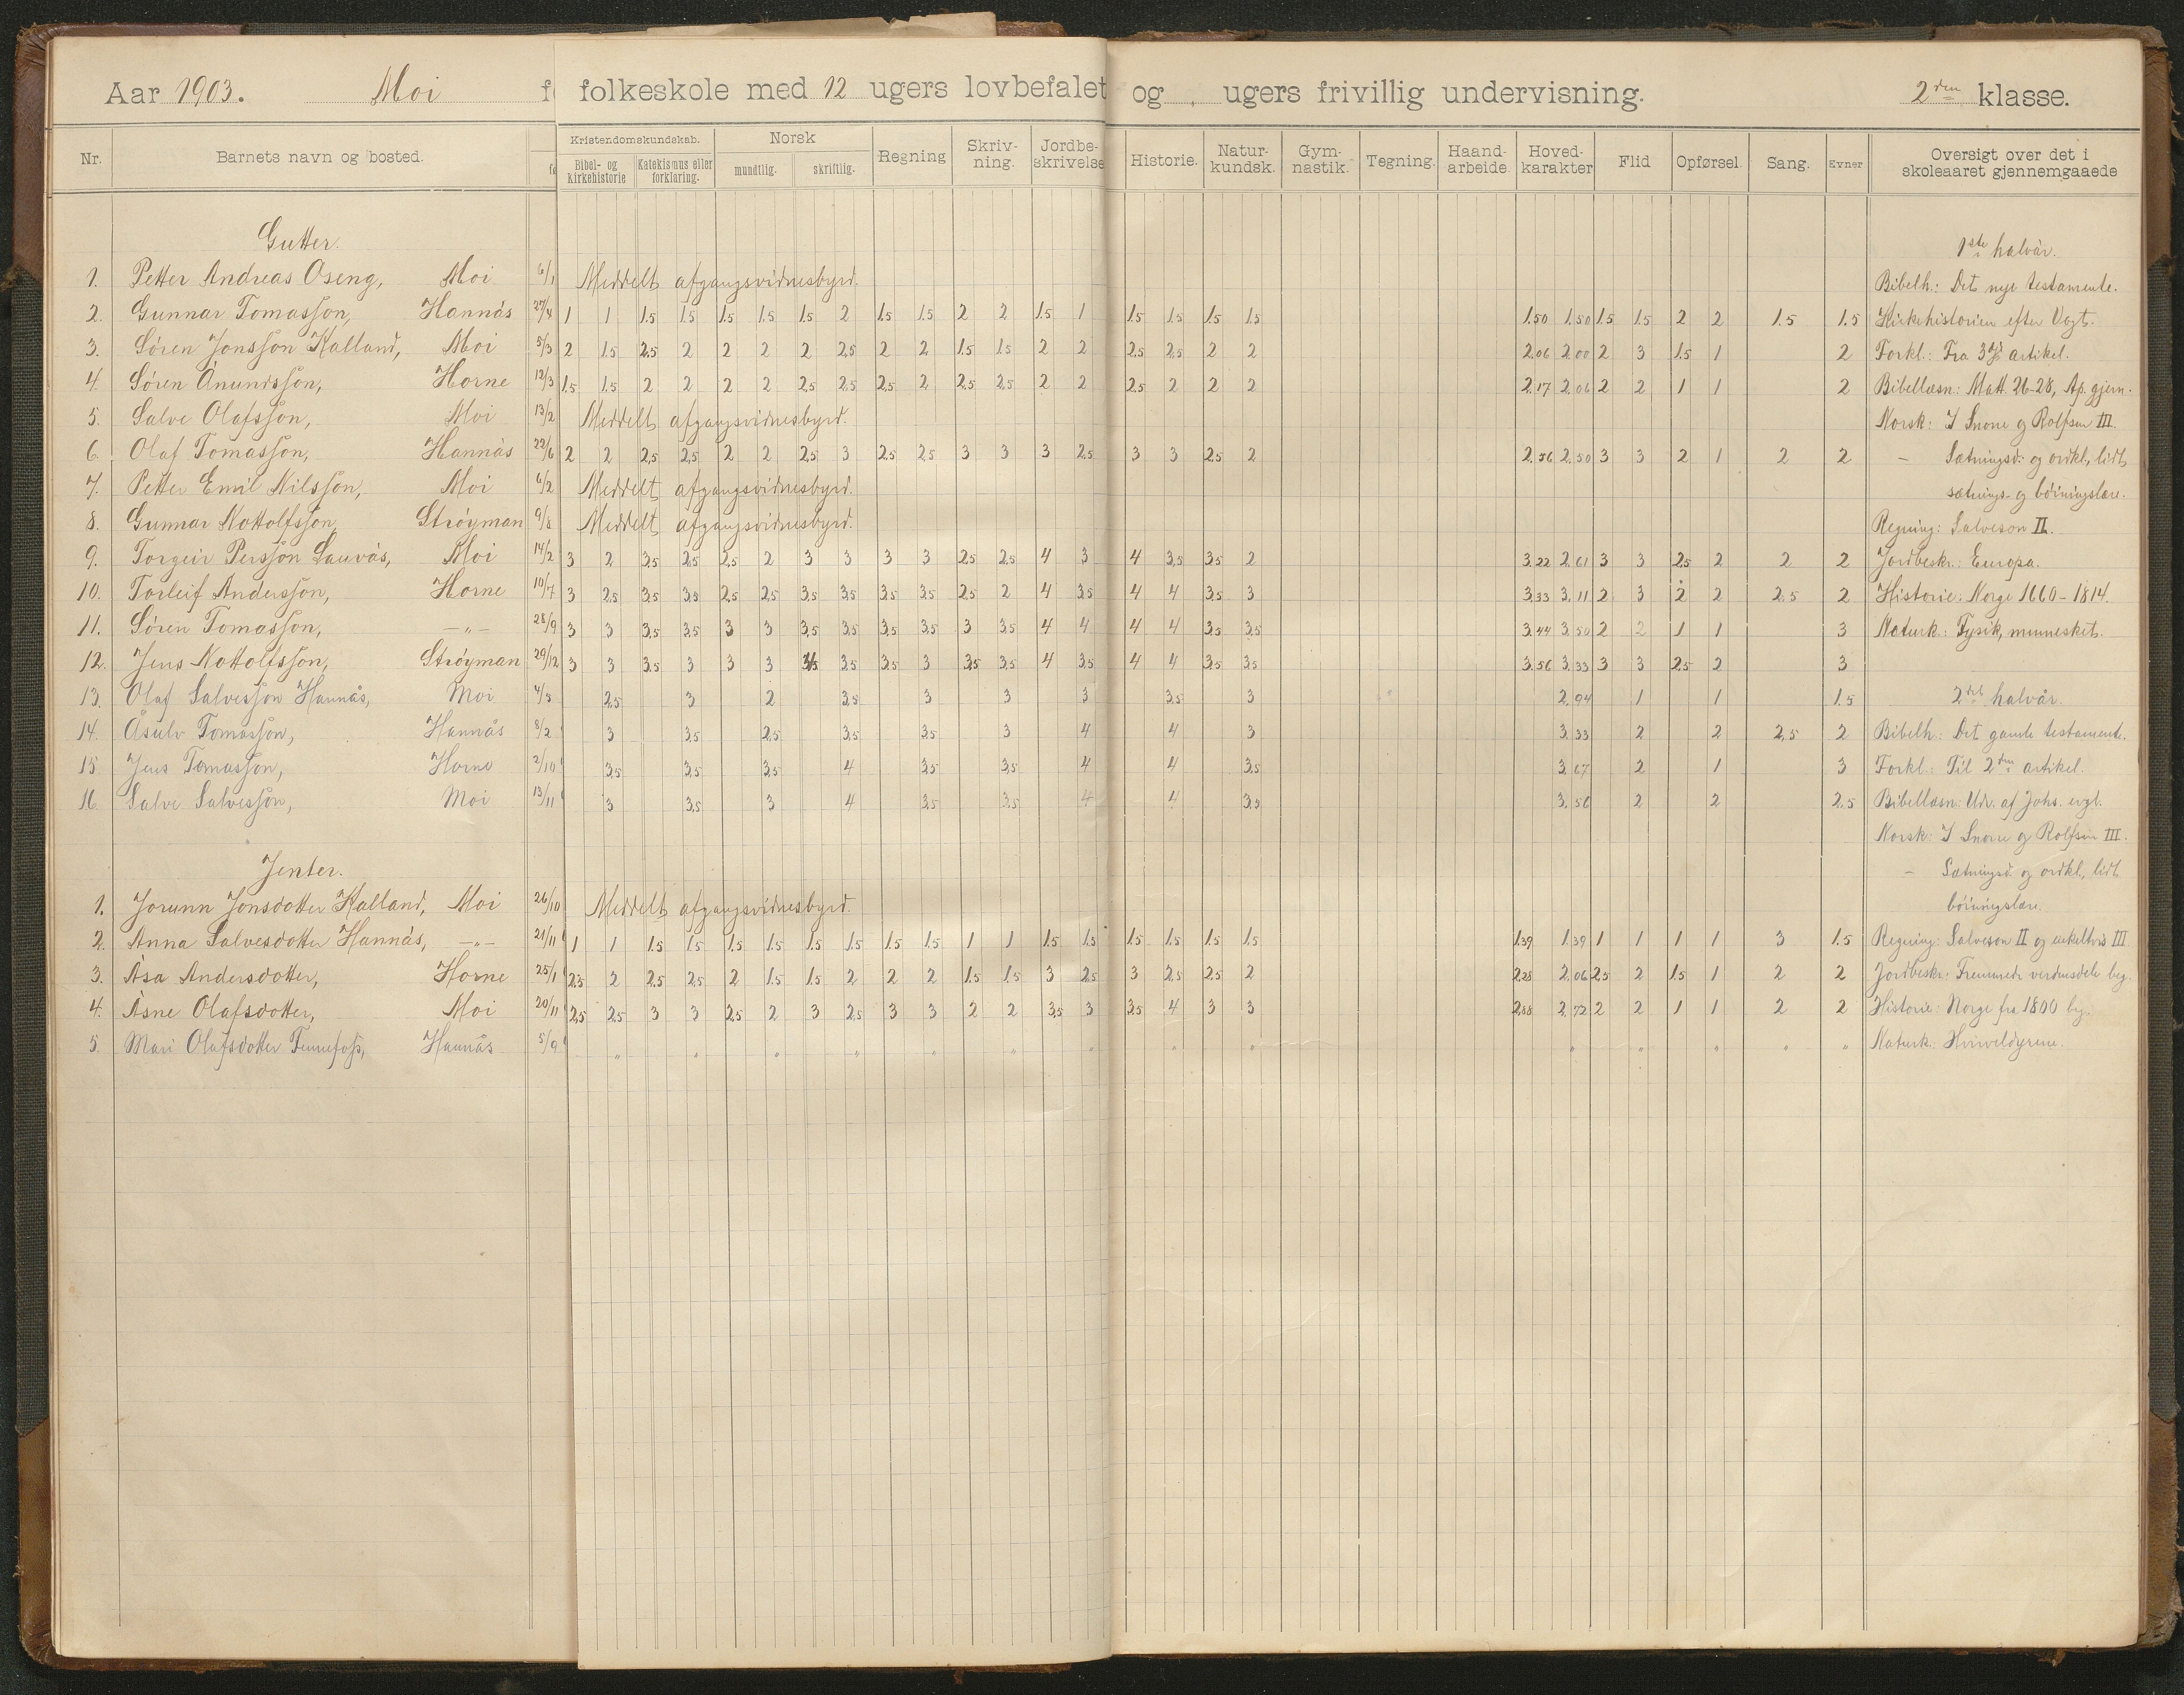 Aar 1903. Moi folkeskole med 12 ugers lovbefalet og ugers frivillig undervisning. 2den klasse.
Nr. Barnets navn og bosted. Kristendomskundskab. Bibel- og kirkehistorie Katekismus eller forklaring. Norsk mundtlig. skriftlig. Regning Skriv-ning. Jordbe-skrivelse Historie. Natur-kundsk. Gym-nastik. Tegning. Haand-arbeide. Hoved-karakter Flid Opførsel. Sang. Evner Oversigt over det i skoleaaret gjennemgaaede
Gutter. 1ste halvår.
1. Petter Andreas Oseng, Moi 6/1 Meddelt afgangsvidnesbyrd. Bibelh.: Det nye testamente.
2. Gunnar Tomasson, Hannås 27/4 1 1 1.5 1.5 1.5 1.5 1.5 2 1.5 1.5 2 2 1.5 1 1.5 1.5 1.5 1.5 1.50 1.50 1.5 1.5 2 2 1.5 1.5 Kirkehistorien efter Vogt.
3. Søren Jonsson Kalland, Moi 5/3 2 1.5 2.5 2 2 2 2 2.5 2 2 1.5 1.5 2 2 2.5 2.5 2 2 2.06 2.00 2 3 1.5 1 2 Forkl.: Fra 3dj artikel.
4. Søren Ånundsson, Horne 12/3 1.5 1.5 2 2 2 2 2.5 2.5 2.5 2 2.5 2.5 2 2 2.5 2 2 2 2.17 2.06 2 2 1 1 2 Bibellæsn.: Matt. 26-28, Ap. gjern.
5. Salve Olafsson, Moi 13/2 Meddelt afgangsvidnesbyrd. Norsk: I Snorre og Rolfsen III.
6. Olaf Tomasson, Hannås 22/6 2 2 2.5 2.5 2 2 2.5 3 2.5 2.5 3 3 3 2.5 3 3 2.5 2 2.56 2.50 3 3 2 1 2 2 - Sætningsd.- og ordkl., lidt
7. Petter Emil Nilsson, Moi 6/2 Meddelt afgangsvidnesbyrd. sætnings- og bøiningslære.
8. Gunnar Nottolfsson, Strøyman 9/8 Meddelt afgangsvidnesbyrd. Regning: Salveson II.
9. Torgeir Persson Lauvås, Moi 14/2 3 2 3.5 2.5 2.5 2 3 3 3 3 2.5 2.5 4 3 4 3.5 3.5 2 3.22 2.61 3 3 2.5 2 2 2 Jordbeskr.: Europa.
10. Torleif Andersson, Horne 10/7 3 2.5 3.5 3.5 2.5 2.5 3.5 3.5 3.5 3.5 2.5 2 4 3.5 4 4 3.5 3 3.33 3.11 2 3 2 2 2.5 2 Historie: Norge 1660-1814.
11. Søren Tomasson, -"- 28/9 3 3 3.5 3.5 3 3 3.5 3.5 3.5 3.5 3 3.5 4 4 4 4 3.5 3.5 3.44 3.50 2 2 1 1 3 Naturk.: Fysik, mennesket.
12. Jens Nottolfsson, Strøyman 29/12 3 3 3.5 3 3 3 3.5 3.5 3.5 3 3.5 3.5 4 3.5 4 4 3.5 3.5 3.56 3.33 3 3 2.5 2 3
13. Olaf Salvesson Hannås, Moi 4/3 2.5 3 2 3.5 3 3 3 3.5 3 2.94 1 1 1.5 2det halvår.
14. Åsulv Tomasson, Hannås 8/2 3 3.5 2.5 3.5 3.5 3 4 4 3 3.33 2 2 2.5 2 Bibelh.: Det gamle testamente.
15. Jens Tomasson, Horne 2/10 3.5 3.5 3.5 4 3.5 3.5 4 4 3.5 3.67 2 1 3 Forkl.: Til 2den artikel.
16. Salve Salvesson, Moi 13/11 3 3.5 3 4 3.5 3.5 4 4 3.5 3.56 2 2 2.5 Bibellæsn.: Udv. af Johs. evgl.
Norsk: I Snorre og Rolfsen III.
Jenter. - Sætningsd. og ordkl., lidt
1. Jorunn Jonsdotter Kalland, Moi 26/10 Meddelt afgangsvidnesbyrd. bøiningslære.
2. Anna Salvesdotter Hannås, -"- 21/11 1 1 1.5 1.5 1.5 1.5 1.5 1.5 1.5 1.5 1 1 1.5 1.5 1.5 1.5 1.5 1.5 1.39 1.39 1 1 1 1 3 1.5 Regning: Salveson II og enkeltvis III.
3. Åsa Andersdotter, Horne 25/1 2.5 2 2.5 2.5 2 1.5 1.5 2 2 2 1.5 1.5 3 2.5 3 2.5 2.5 2 2.28 2.06 2.5 2 1.5 1 2 2 Jordbeskr.: Fremmede verdensdele beg.
4. Åsne Olafsdotter, Moi 20/11 2.5 2.5 3 3 2.5 2 3 2.5 3 3 2 2 3.5 3 3.5 4 3 3 2.88 2.72 2 2 1 1 2 2 Historie: Norge fra 1800 beg.
5. Mari Olafsdotter Hannås 5/9 " " " " " " " " " " " " " Naturk.: Hvirveldyrene.